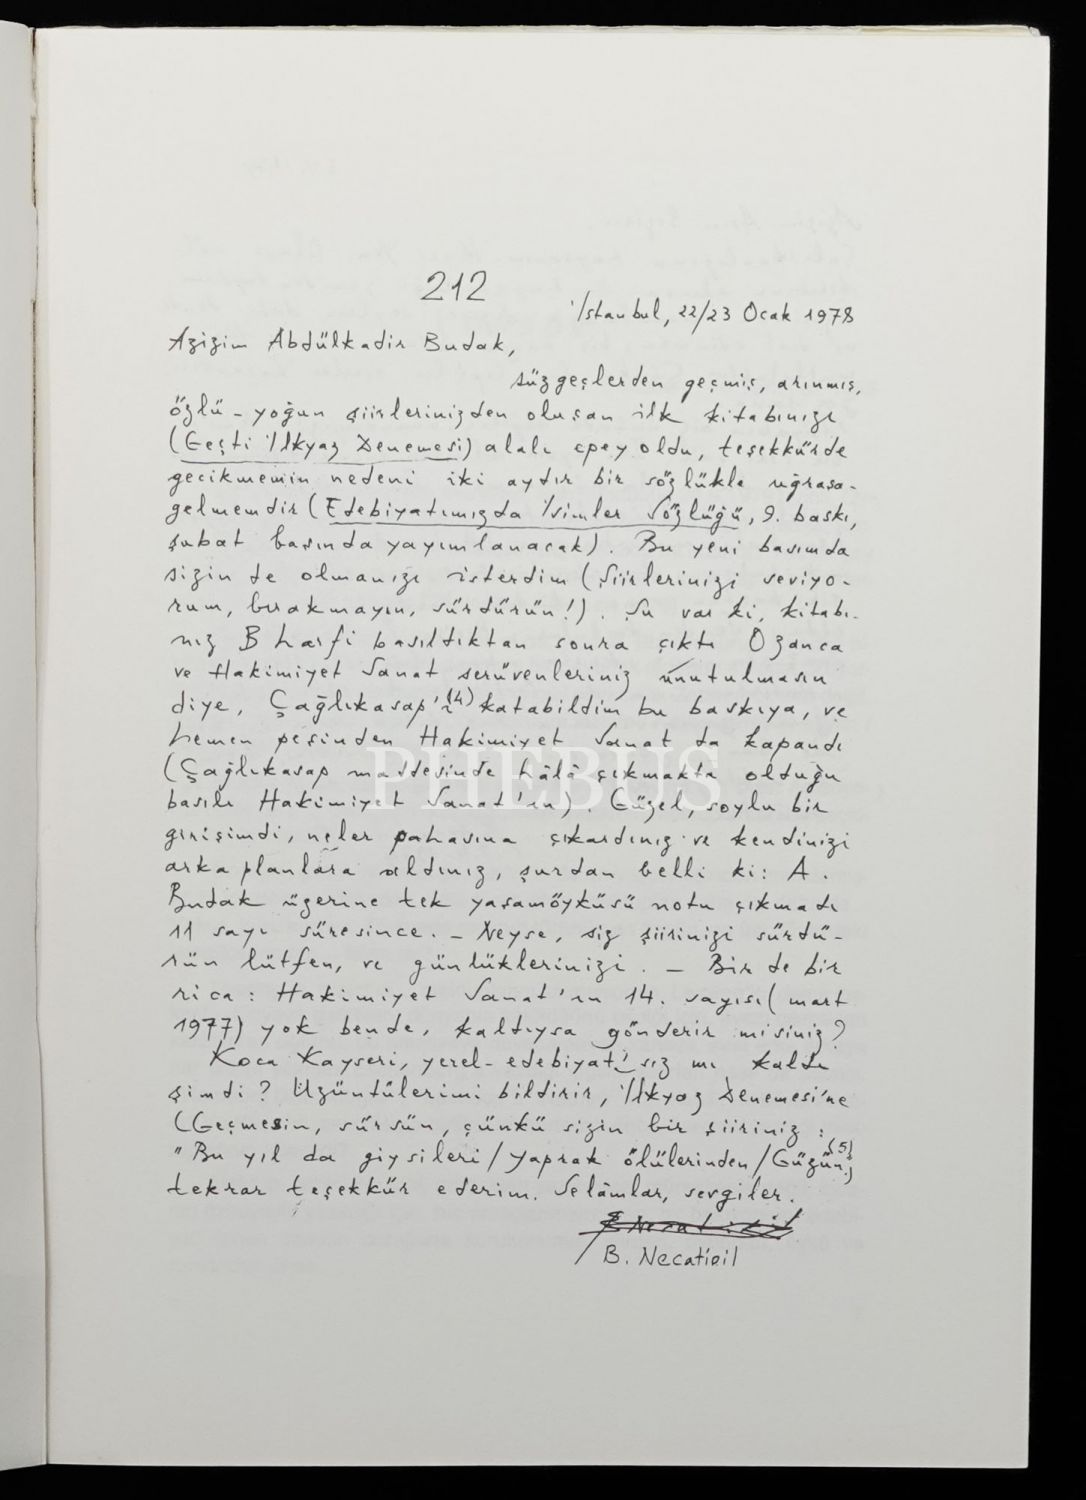 212
İstanbul, 22/23 Ocak 1978
Azizim Abdülkadir Budak,
süzgeçlerden geçmiş, arınmış,
özlü - yoğun şiirlerinizden oluşan ilk kitabınızı
(Geçti İlkyaz Denemesi) alalı epey oldu, teşekkürde
gecikmemin nedeni iki aydır bir sözlükle uğraşa-
gelmemdir (Edebiyatımızda İsimler Sözlüğü, 9. baskı,
şubat başında yayımlanacak). Bu yeni basımda
sizin de olmanızı isterdim (Şiirlerinizi seviyo-
rum, bırakmayın, sürdürün!). Şu var ki, kitabı-
nız B harfi basıldıktan sonra çıktı Ozanca
ve Hakimiyet Sanat serüvenleriniz unutulmasın
diye, Çağlıkasap'ı (4) katabildim bu baskıya, ve
hemen peşinden Hakimiyet Sanat da kapandı
(Çağlıkasap maddesinde hâlâ çıkmakta olduğu
basılı Hakimiyet Sanat'ın). Güzel, soylu bir
girişimdi, neler pahasına çıkardınız ve kendinizi
arka planlara aldınız, şurdan belli ki: A.
Budak üzerine tek yaşamöyküsü notu çıkmadı
11 sayı süresince. - Neyse, siz şiirinizi sürdü-
rün lütfen, ve günlüklerinizi. - Bir de bir
rica: Hakimiyet Sanat'ın 14. sayısı (mart
1977) yok bende, kaldıysa gönderir misiniz?
Koca Kayseri, yerel-edebiyat'sız mı kaldı
şimdi? Üzüntülerimi bildirir, İlkyaz Denemesi'ne
(Geçmesin, sürsün, çünkü sizin bir şiiriniz:
"Bu yıl da giysileri/yaprak ölülerinden/Güzün.) (5)
tekrar teşekkür ederim. Selâmlar, sevgiler.
B. Necatigil
PHEBUS